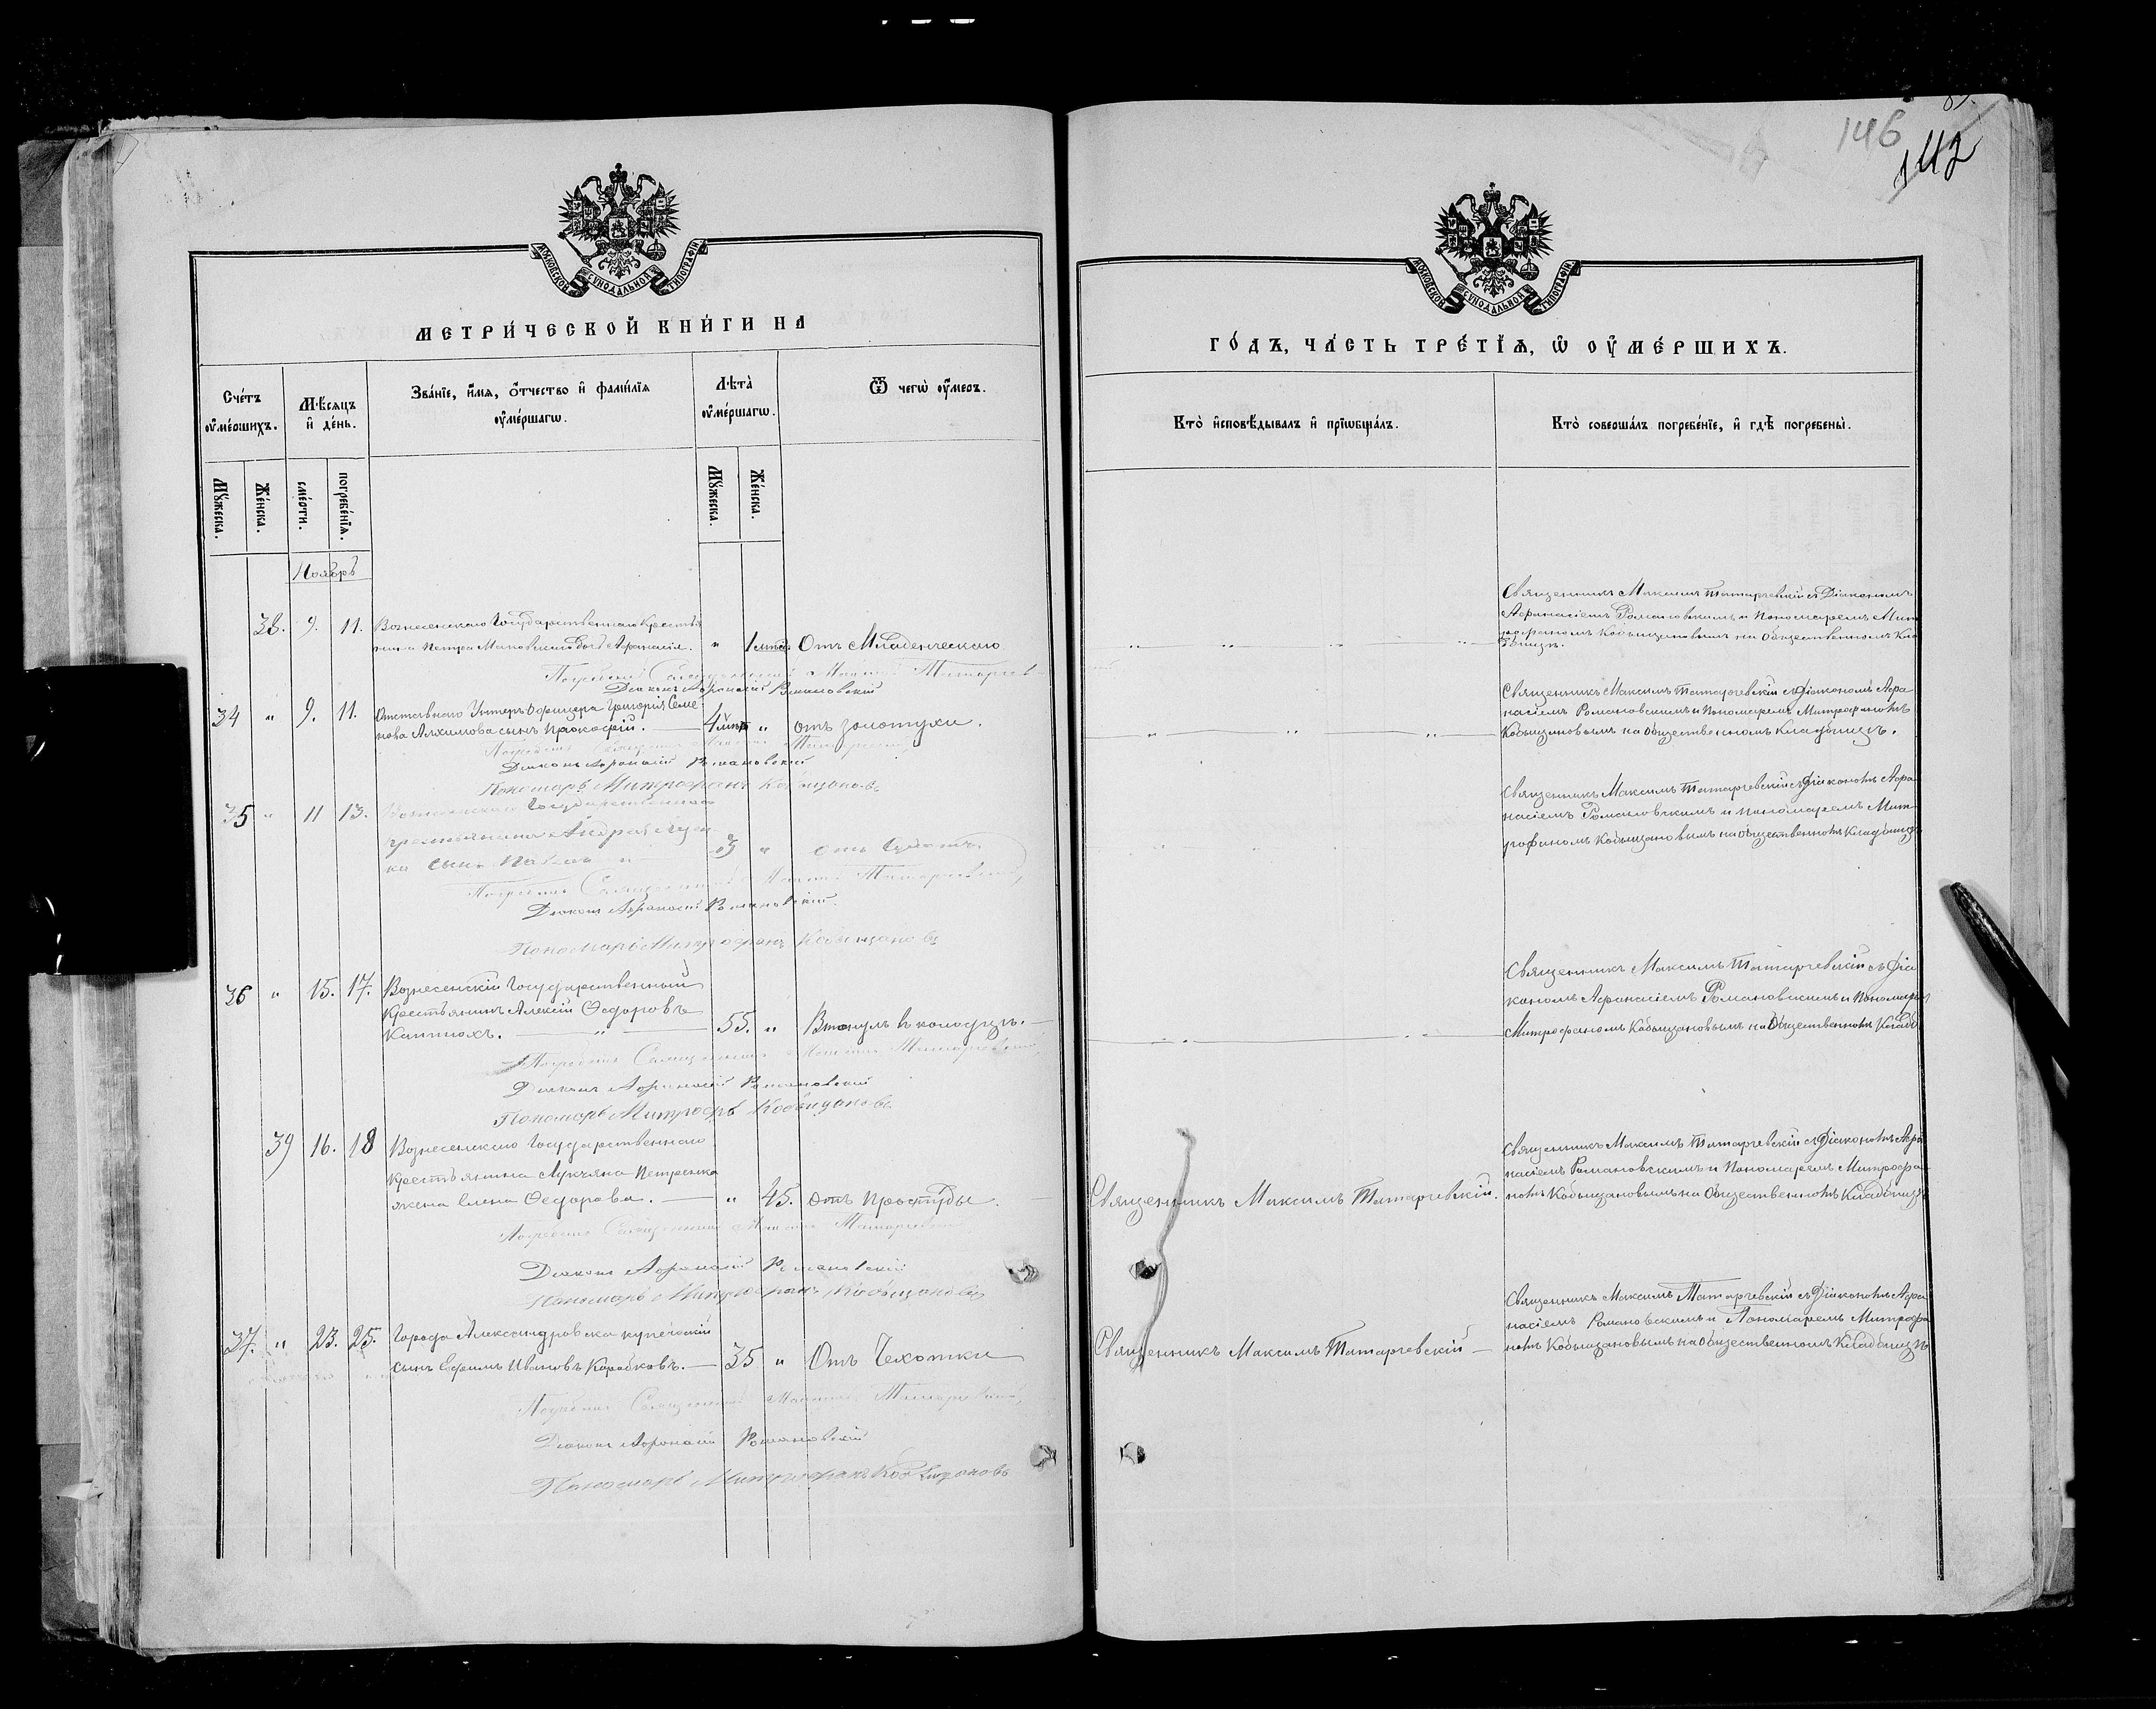 146
142
МОСКОВСКОЙ СѴНОДАЛЬНОЙ ТИПОГРАФІИ
МЕТРИ́ЧЕСКОЙ КНИ́ГИ НА
Сче́тъ ᲂу҆ме́ршихъ.
Мѣ́сяцъ и҆ де́нь.
Зва́нїе, и҆́мѧ, ѻ҆́тчество и҆ фами́лїѧ ᲂу҆ме́ршагѡ.
Лѣта̀ ᲂу҆ме́ршагѡ.
Ѿ чегѡ̀ ᲂу҆́меръ.
Мꙋ́жеска.
Же́нска.
сме́рти.
погребе́нїѧ.
Мꙋ́жеска.
Же́нска.
Ноябрь
38. 9. 11. Вознесенскаго Государственнаго Крестья
нина Петра Маковскаго дочь Афанасія. " 1 лѣтъ Отъ Младенческаго
Погребалъ Священникъ Максимъ Татарчев
Діаконъ Афанасій Романовскій
34 " 9. 11. Отставнаго Унтеръ Офицера Григорія Семе
нова Алхимова сынъ Прокофій. 4 лѣтъ " отъ золотухи.
Погребалъ Священникъ Максимъ Татарчевскій
Діаконъ Афанасій Романовскій
Пономарь Митрофанъ Кобыщановъ
35 " 11 13. Вознесенскаго Государственнаго
крестьянина Андрея
ка сынъ Павелъ "
Погребалъ Священникъ Максимъ Татарчевскій,
Діаконъ Афанасій Романовскій.
Пономарь Митрофанъ Кобыщановъ
36 " 15. 17. Вознесенскій Государственный
Крестьянинъ Алексій Ѳедоровъ
Каптюхъ. " 55. " Втонулъ в колодезѣ.
Погребалъ Священникъ Максимъ Татарчевскій,
Діаконъ Афанасій Романовскій
Пономарь Митрофанъ Кобыщановъ
39 16. 18 Вознесенскаго Государственнаго
Крестьянина Лукьяна Петренка
жена Елена Ѳедорова. " 45. отъ простуды.
Погребалъ Священникъ Максимъ Татарчевскій,
Діаконъ Афанасій Романовскій
Пономарь Митрофанъ Кобыщановъ
37. " 23. 25. Города Александровска купеческій
сынъ Ефимъ Ивановъ Коробковъ. 35 " Отъ Чехотки
Погребалъ Священникъ Максимъ Татарчевскій,
Діаконъ Афанасій Романовскій
Пономарь Митрофанъ Кобыщановъ
МОСКОВСКОЙ СѴНОДАЛЬНОЙ ТИПОГРАФІИ
ГО́ДЪ, ЧА́СТЬ ТРЕ́ТЇѦ, Ѡ҆ ОУ҆МЕ́РШИХЪ.
Кто̀ и҆сповѣ́дывалъ и҆ прїѡбща́лъ.
Кто̀ соверша́лъ погребе́нїе, и҆ гдѣ̀ погребены̀.
Священникъ Максимъ Татарчевскій съ Діакономъ
Афанасіемъ Романовскимъ и Пономаремъ Мит
рофаномъ Кобыщановымъ на Общественномъ Кла
дбищѣ.
Священникъ Максимъ Татарчевскій съ Діакономъ Афа
насіемъ Романовскимъ и Пономаремъ Митрофаномъ
Кобыщановымъ на Общественномъ Кладбищѣ.
Священникъ Максимъ Татарчевскій съ Діакономъ Афа
насіемъ Романовскимъ и пономаремъ Мит
рофаномъ Кобыщановымъ на Общественномъ Кладбищѣ
Священникъ Максимъ Татарчевскій съ Діа
кономъ Афанасіемъ Романовскимъ и Пономаремъ
Митрофаномъ Кобыщановымъ на Общественномъ Кладб
Священникъ Максимъ Татарчевскій съ Діакономъ Афа
насіемъ Романовскимъ и Пономаремъ Митрофа
Священникъ Максимъ Татарчевскій. номъ Кобыщановымъ на Общественномъ Кладбищѣ
Священникъ Максимъ Татарчевскій съ Діакономъ Афа
насіемъ Романовскимъ и Пономаремъ Митрофа
Священникъ Максимъ Татарчевскій номъ Кобыщановымъ на Общественномъ Кладбищѣ